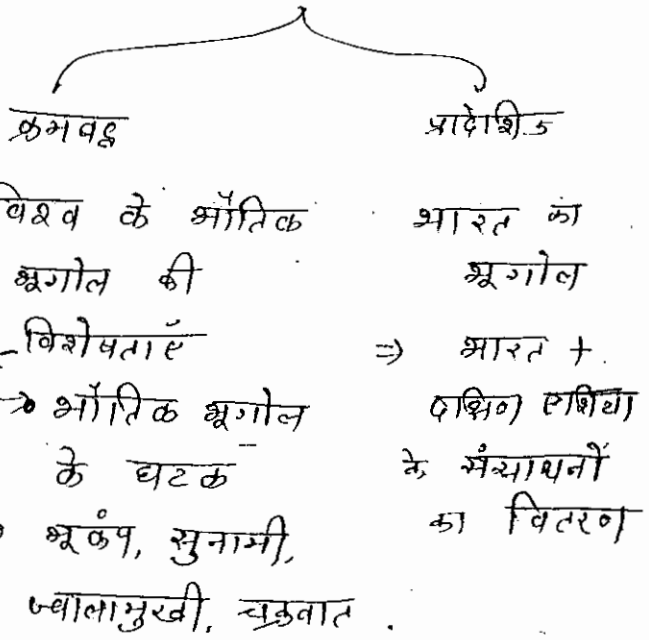 क्रमबद्ध
विश्व के भौतिक
भूगोल की
विशेषताएँ
→ भौतिक भूगोल
के घटक
भूकंप, सुनामी,
ज्वालामुखी, चक्रवात.
प्रादेशिक
भारत का
भूगोल
⇒ भारत +
दक्षिण एशिया
के संसाधनों
का वितरण